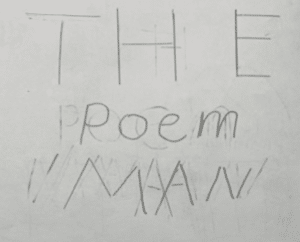 THE
Poem
MAN